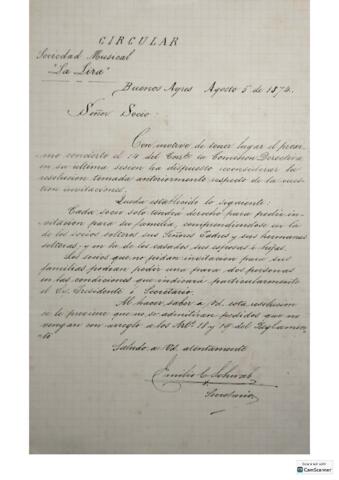 CIRCULAR
Sociedad Musical
"La Lira"
Buenos Ayres Agosto 5 de 1874.
Señor Socio:
Con motivo de tener lugar el proxi-
mo concierto el 14 del Corte la Comision Directiva
en su ultima sesion ha dispuesto reconsiderar la
resolucion tomada anteriormente respecto de la cues-
tion invitaciones.
Queda establecido lo siguiente:
Cada socio solo tendrá derecho para pedir in-
vitacion para su familia, comprendiendose en la
de los socios solteros sus Señores Padres y sus hermanas
solteras y en la de los casados sus esposas é hijas.
Los socios que no pidan invitacion para sus
familias podran pedir una para dos personas
en las condiciones que indicará particularmente
el Sr. Presidente ó Secretario.
Al hacer saber á Vd. esta resolucion
se le previene que no se admitiran pedidos que no
vengan con arreglo a los Artos 18 y 19 del Reglamen-
to
Saludo a Vd. atentamente
Emilio C. Schwab
Secretario
Scanned with
CamScanner